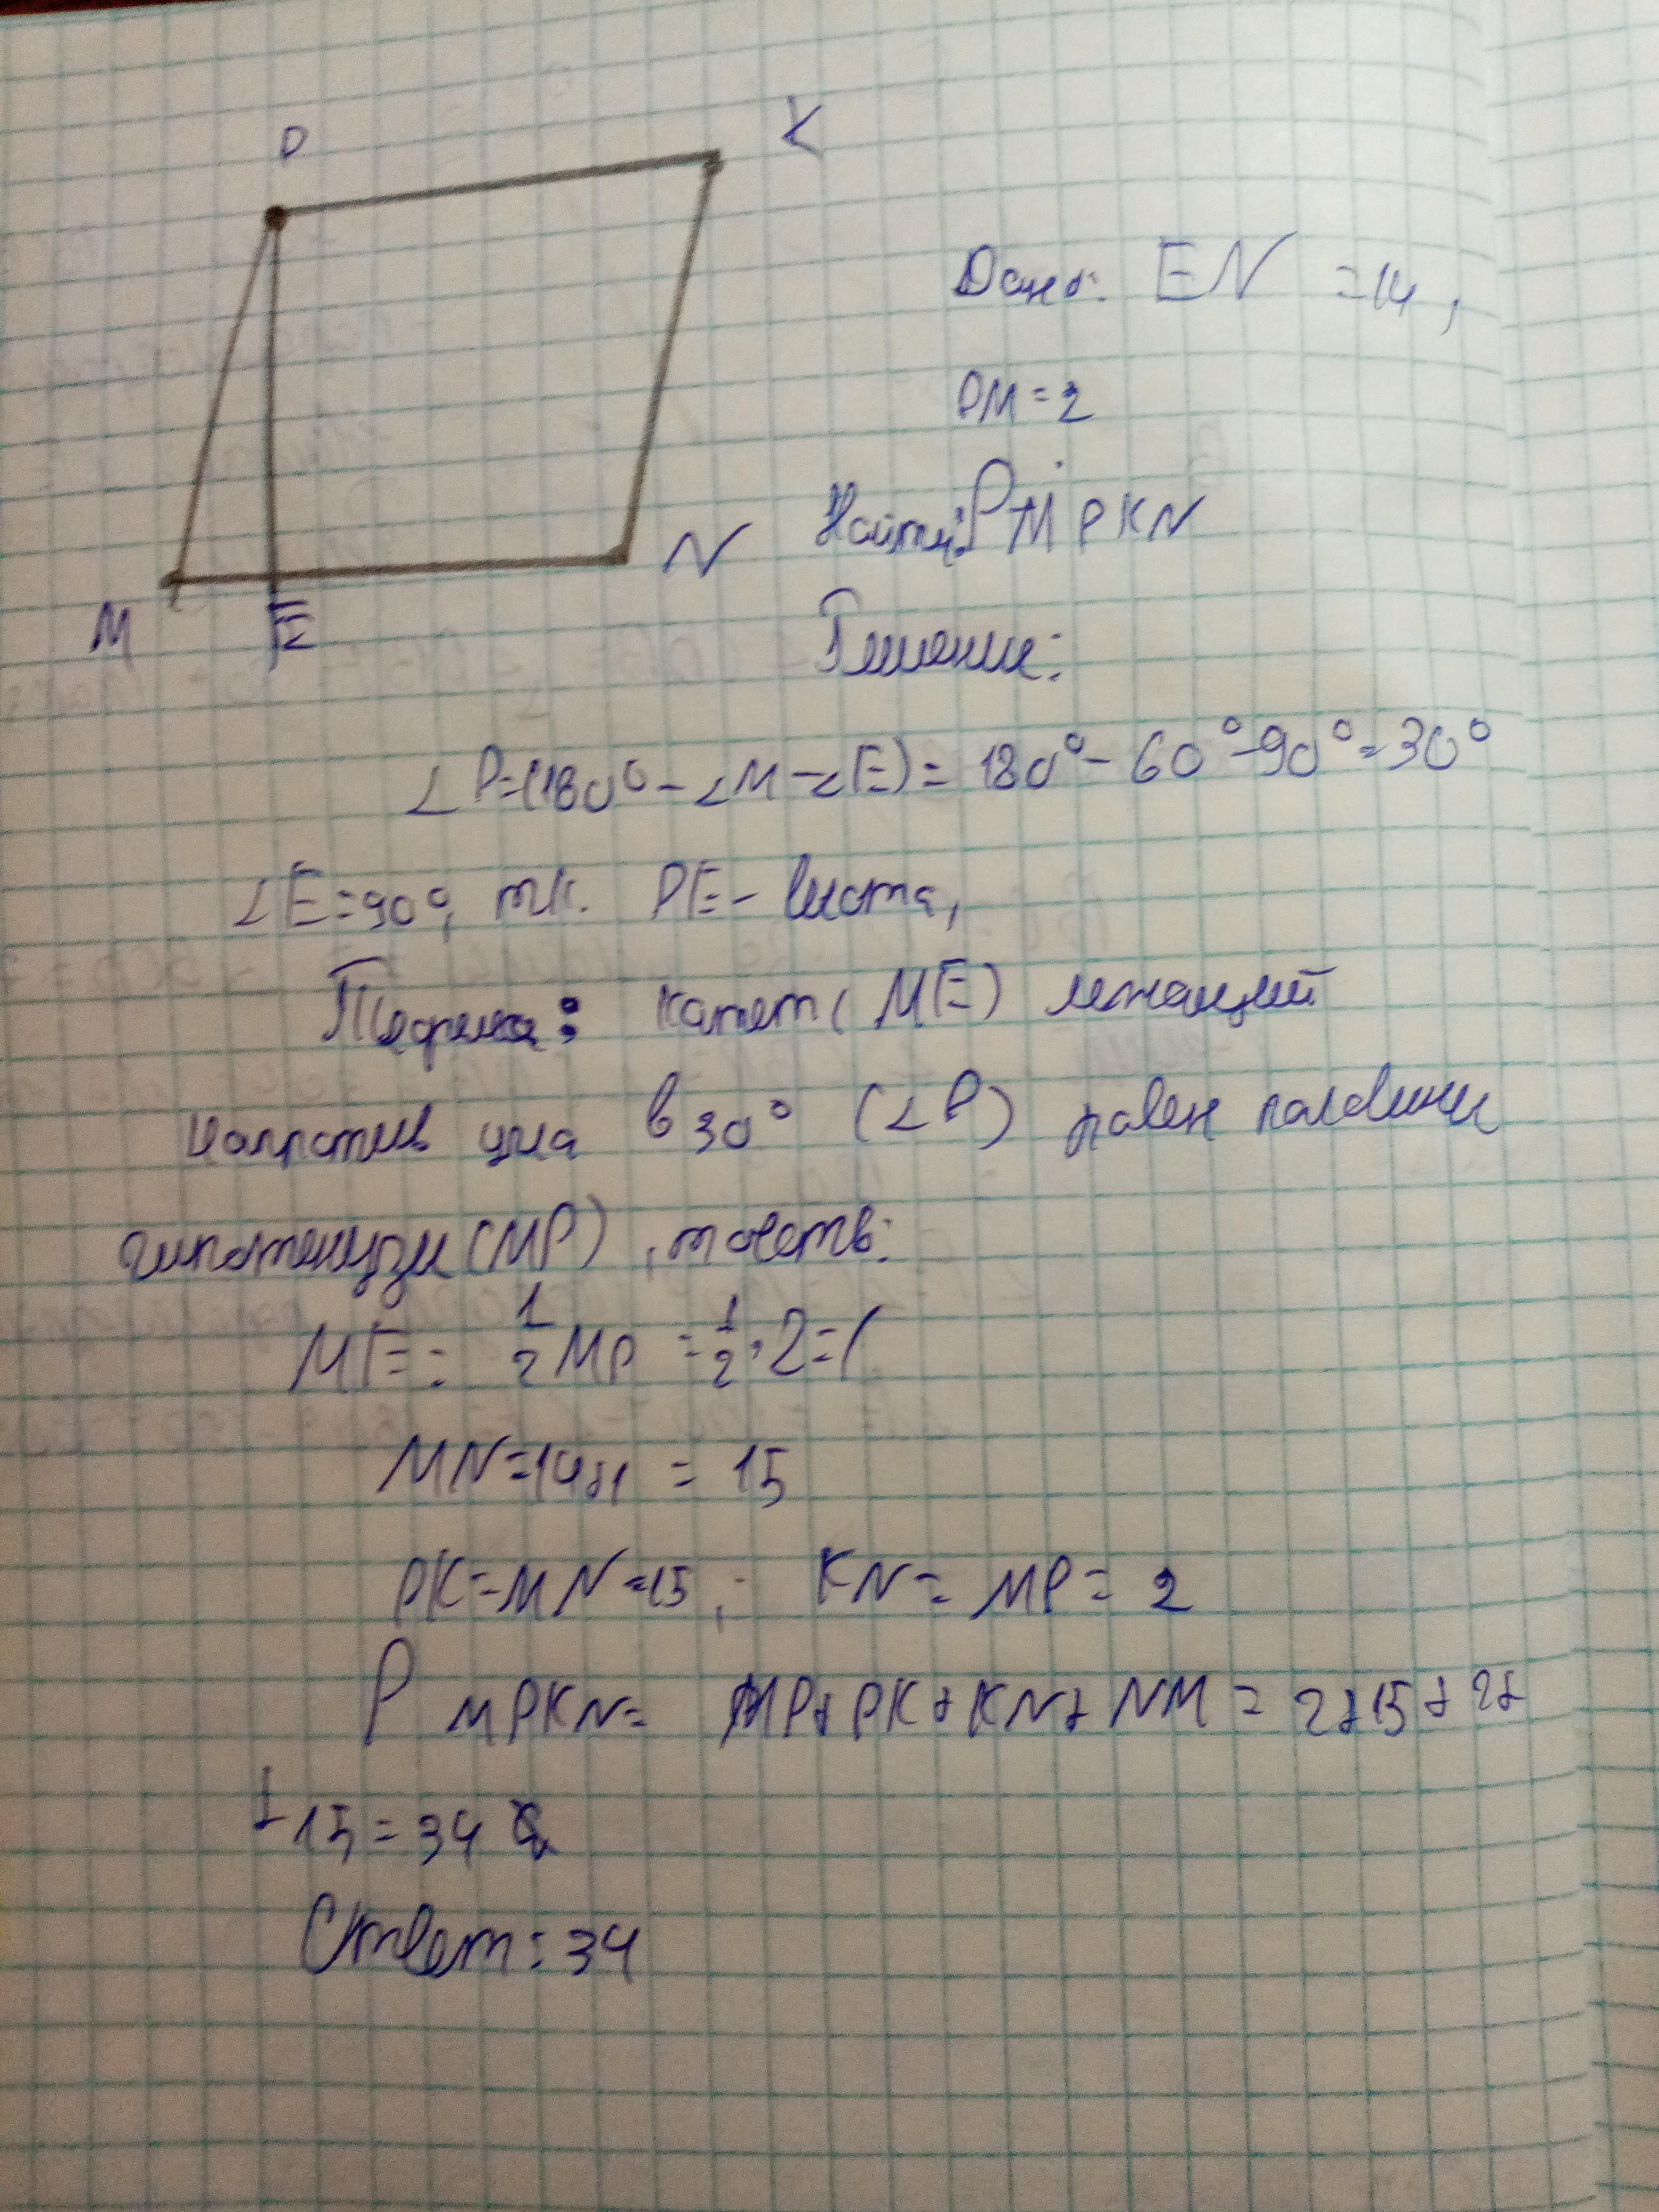 P
K
M
E
N
Дано: EN = 14,
PM = 2
Найти: P MPKN
Решение:
∠P=(180°-∠M-∠E)= 180°-60°-90°=30°
∠E=90°, т.к. PE- высота,
Теорема: катет (ME) лежащий
напротив угла в 30° (∠P) равен половине
гипотенузы (MP), тоесть:
ME = 1/2 MP = 1/2 · 2 = 1
MN=14+1 = 15
PK=MN=15; KN= MP= 2
P MPKN= MP+PK+KN+NM = 2+15+2+
+15=34
Ответ: 34